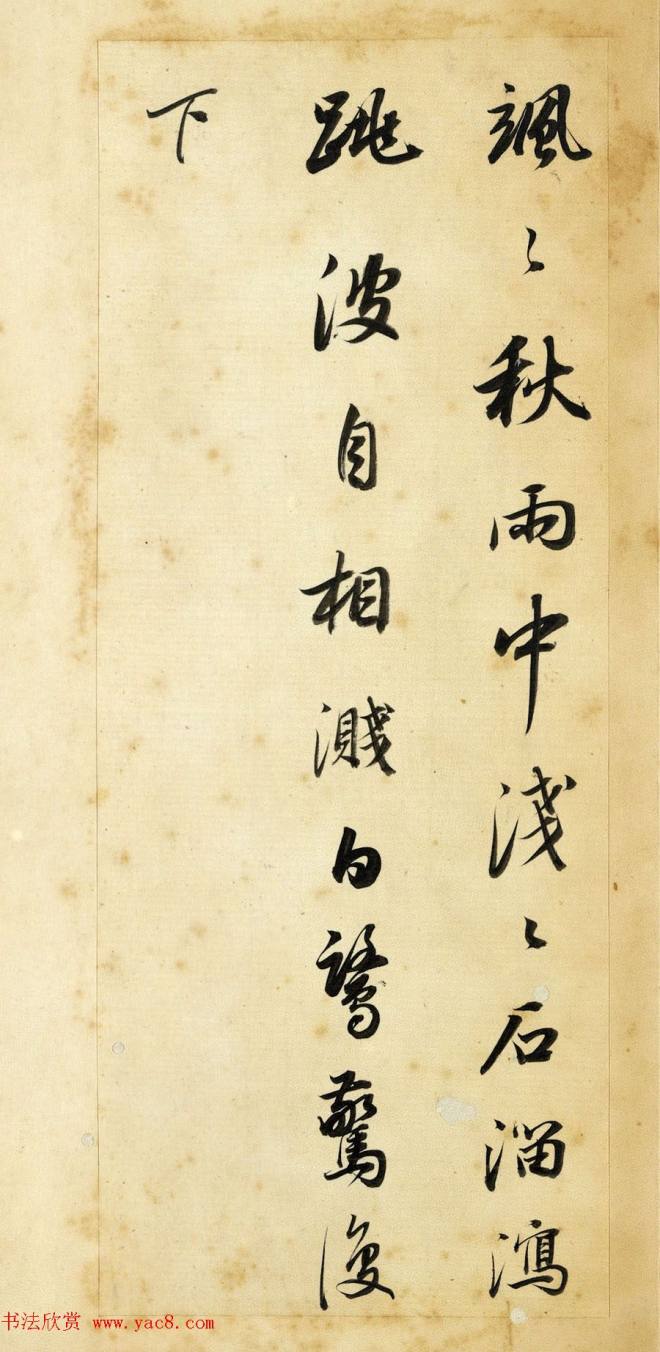 颯〻秋雨中淺〻石溜瀉
跳波自相濺白鷺驚復
下
书法欣赏 www.yac8.com